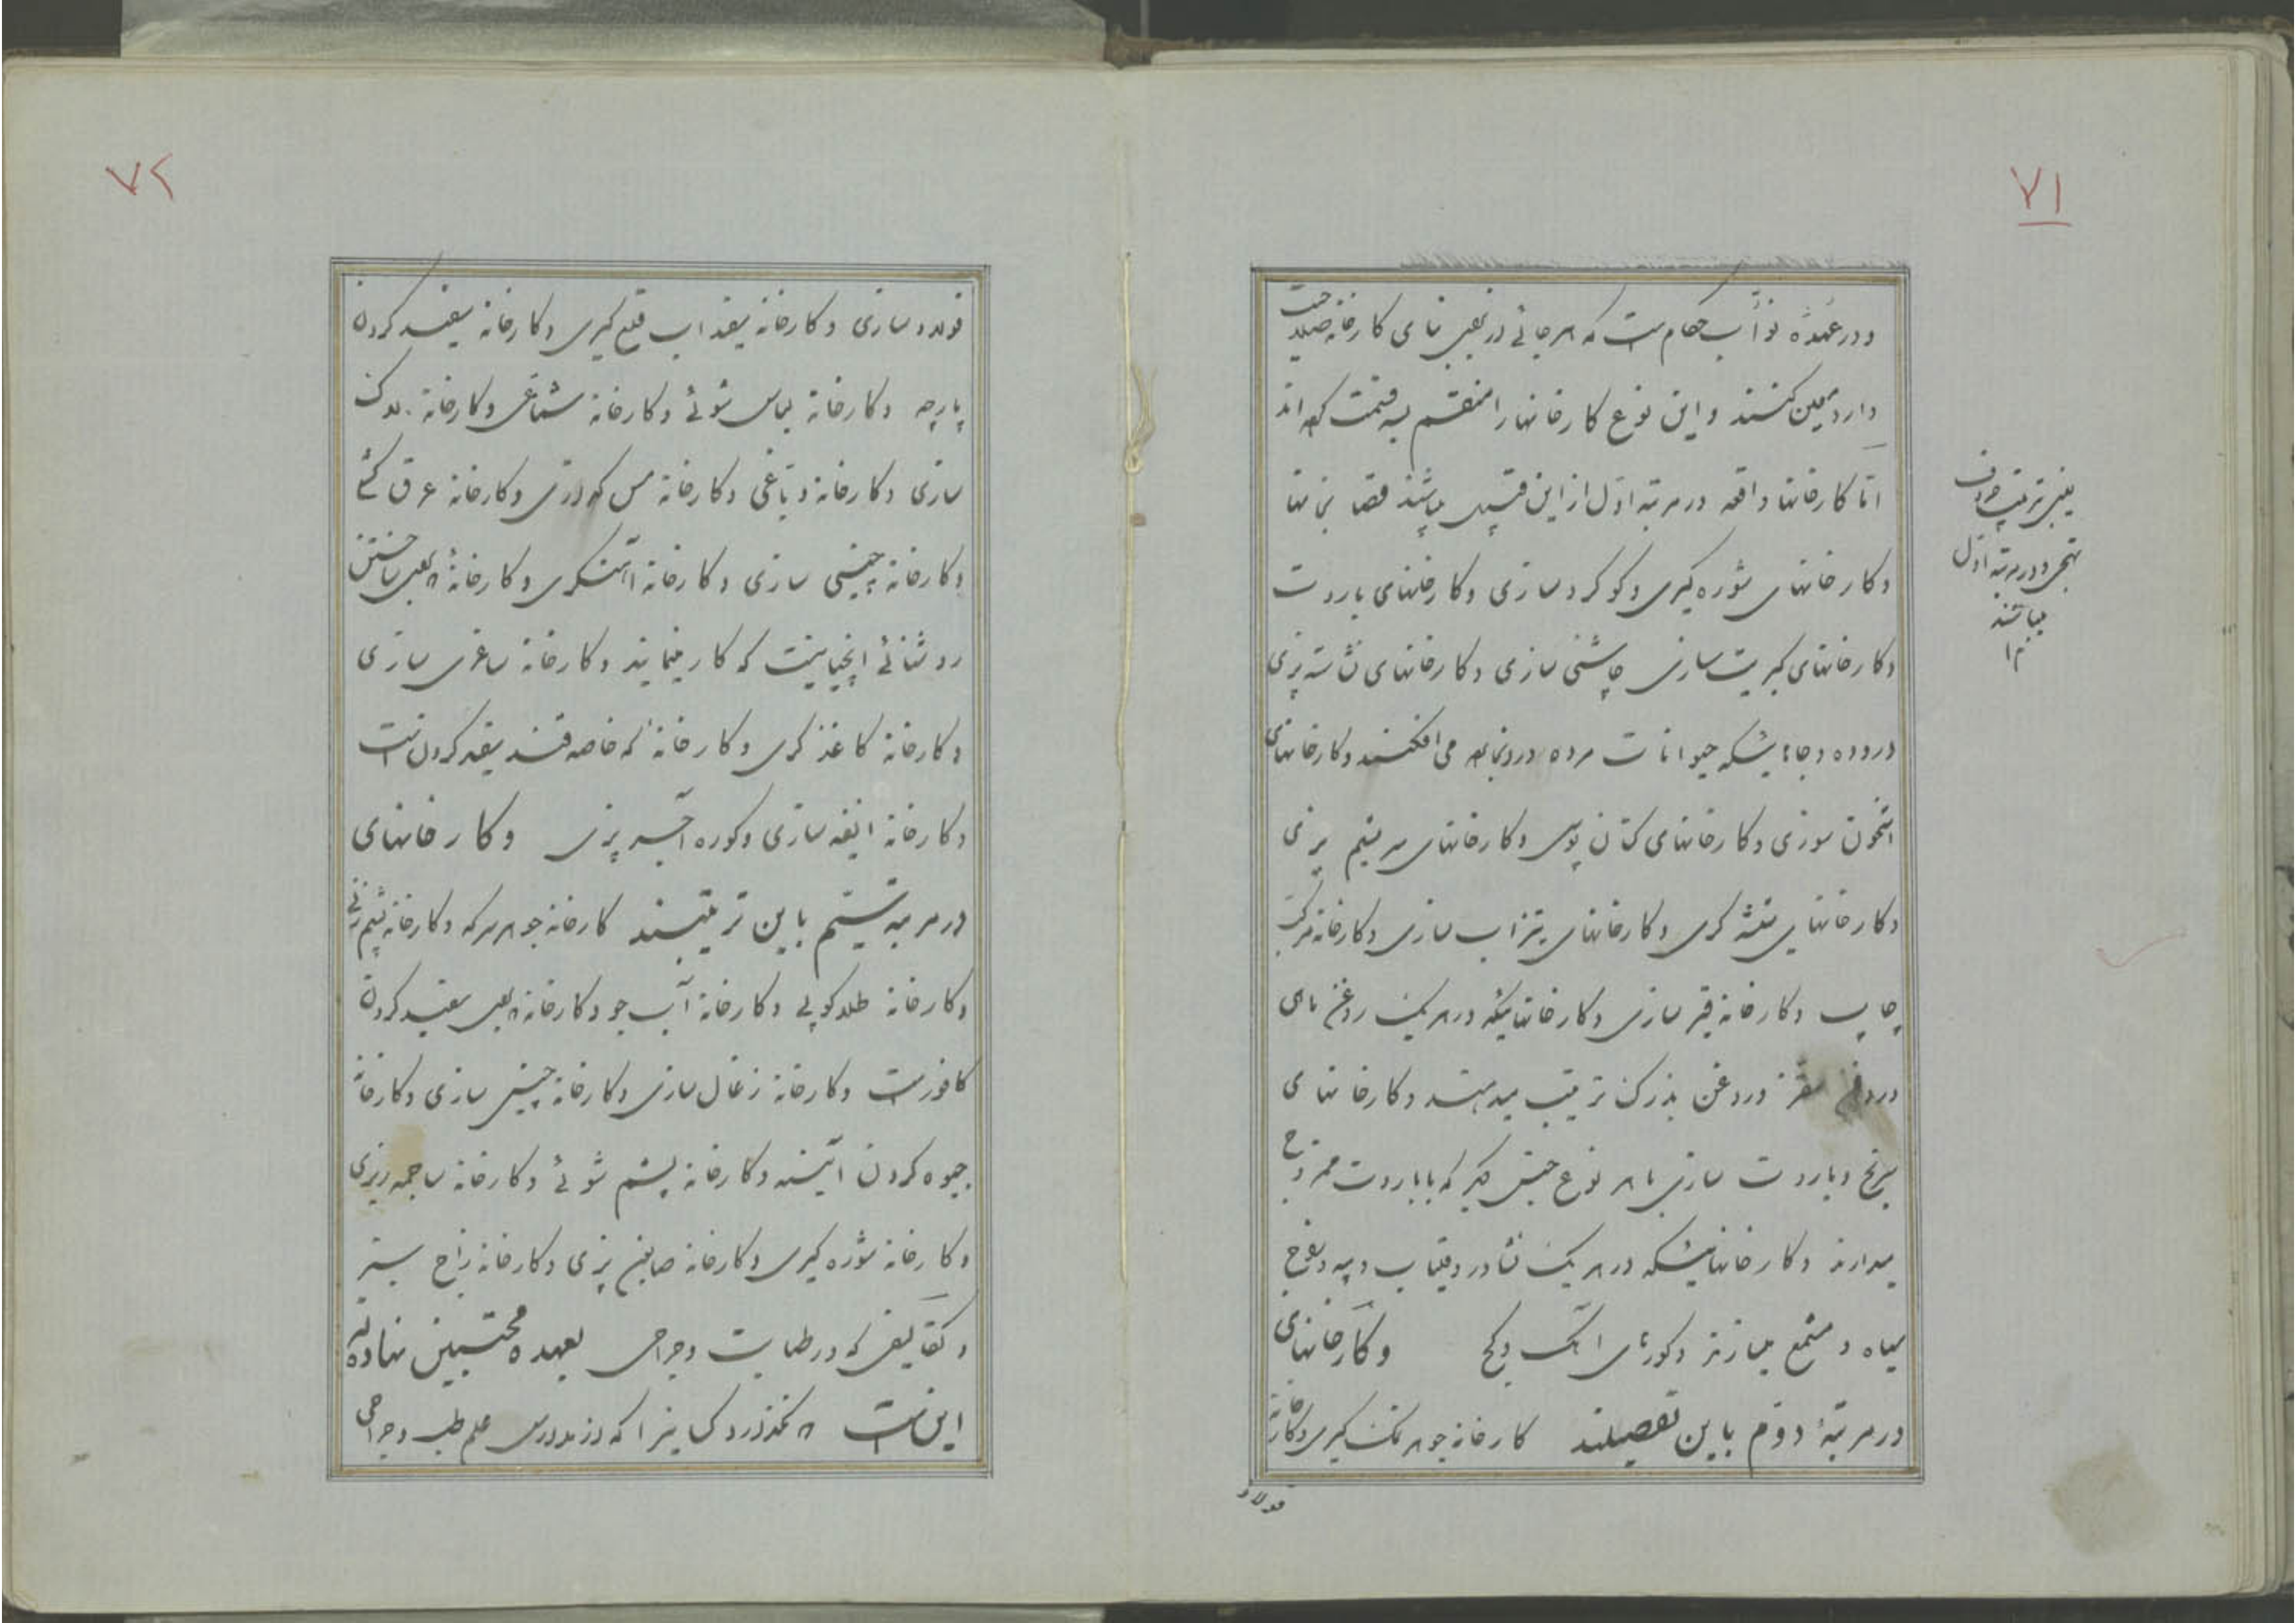 ۷۱
و در عهده نواب حکام است که هر جائی در تعیین بنای کارخانه صلاحیت
دارد معین کنند و این نوع کارخانها را منقسم بسه قسمت کرده اند
اما کارخانها واقعه در مرتبه اول از این قبیل میباشند قصابخانها
و کارخانهای شوره گیری و گوگرد سازی و کارخانهای باروت
و کارخانهای کبریت سازی چاشنی سازی و کارخانهای نشاسته پزی
در روده و جائیکه حیوانات مرده در آنجا می افکنند و کارخانهای
استخوان سوزی و کارخانهای کتان پوسی و کارخانهای سریشم پزی
و کارخانهای شیشه گری و کارخانهای تیزاب سازی و کارخانه مرکب
چاپ و کارخانه قیر سازی و کارخانهائیکه در هر یک روغن ماهی
و روغن سقز و روغن بذرک ترتیب میدهند و کارخانهای
برنج و باروت سازی با هر نوع جنس دیگر که با باروت ممزوج
میدارند و کارخانهائیکه در هر یک نشادر و قیاب و پیه و
سیاه و مشمع میسازند و کورهای آهک و گچ و کارخانهای
در مرتبهٔ دوم باین تفصیلند کارخانه جوهر نمک گیری و کارخانه
فولاد
یعنی بترتیب حروف
تهجی و در مرتبه اول
میباشند
۷۲
فولاد سازی و کارخانه سفیداب قلع گیری و کارخانه سفید کردن
پارچه و کارخانه لباس شوئی و کارخانه شماعی و کارخانه
سازی و کارخانه دباغی و کارخانه مس گدازی و کارخانه عرق کشی
و کارخانه چینی سازی و کارخانه آهنگری و کارخانهٔ لعبی ساختن
روشنائی که کار مینمایند و کارخانه ساغری سازی
و کارخانه کاغذ گری و کارخانهٔ که خاصه قند سفید کردن است
و کارخانه انفیه سازی و کوره آجر پزی و کارخانهای
در مرتبه سیم باین ترتیبند کارخانه جوهر سرکه و کارخانه پشم زنی
و کارخانه طلا کوبی و کارخانه آب جو و کارخانه سفید کردن
کافور است و کارخانه زغال سازی و کارخانه چینی سازی و کارخانه
جیوه کردن آئینه و کارخانه پشم شوئی و کارخانه ساچمه ریزی
و کارخانه شوره گیری و کارخانه صابون پزی و کارخانه زاج سبز
و تکالیفی که در طبابت و جراحی بعهده محتسبین نهاده اند
این است که نگذارد کسانیرا که در مدارس علم طب و جراحی